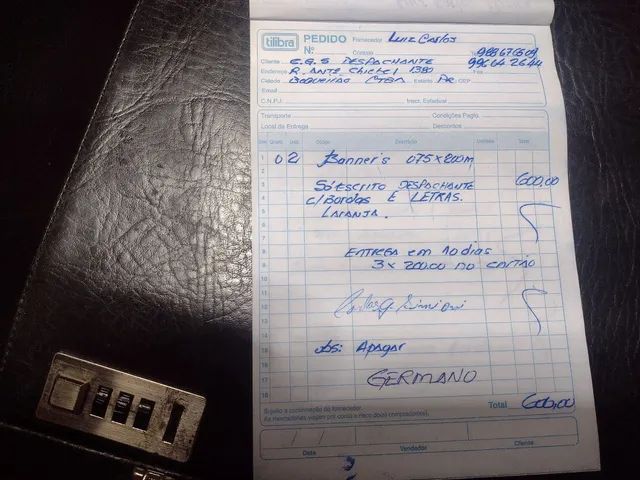 tilibra PEDIDO Fornecedor Luiz Carlos
Nº Contato
Cliente C.G.S DESPACHANTE 996422644
Endereço R. ANTE Chietel 1380 Fax
Cidade Boqueirão CTBA Estado Pr CEP
Email
C.N.P.J. Inscr. Estadual
Transporte Condições Pagto.
Local de Entrega Descontos
Item Quant. Unid. Código Descrição Unitário Total
1 02 Banner's 075x200m
2
3 Só ESCRITO DESPACHANTE 600,00
4 c/Bordas E LETRAS.
5 LARANJA.
6
7
8 ENTREGA em 10 dias
9 3 x 200,00 no CARTÃO
10
11
12
13
14
15 Obs: Apagar
16
17 GERMANO
18
Sujeito a confirmação do fornecedor. Total 600,00
As mercadorias viajam por conta e risco do(s) comprador(es).
/ /
Data Vendedor Cliente